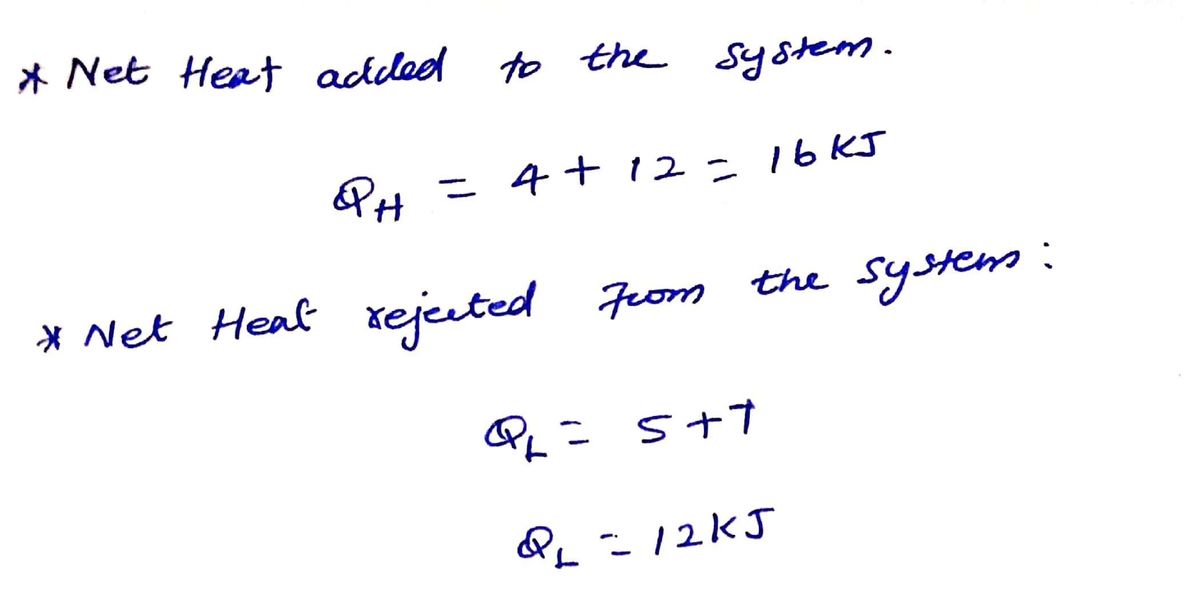 * Net Heat added to the system.
Q_H = 4 + 12 = 16 KJ
* Net Heat rejected from the system:
Q_L = 5 + 7
Q_L = 12 KJ